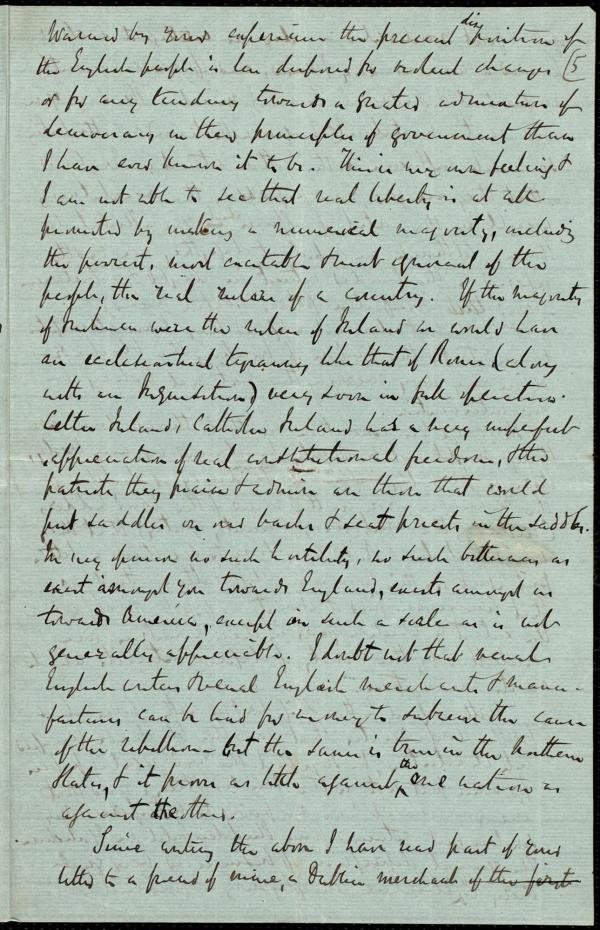 Warned by your experience the present disposition of
the English people is less disposed for violent changes (5
or for any tendency towards a greater admixture of
democracy in their principles of government than
I have ever known it to be. This is my own feeling &
I am not able to see that real liberty is at all
promoted by making a numerical majority, including
the poorest, most excitable & most ignorant of the
people, the real rulers of a country. If the majority
of Irishmen were the rulers of Ireland we would have
an ecclesiastical tyranny like that of Rome (along
with an Inquisition) very soon in full operation.
Celtic Ireland, Catholic Ireland has a very imperfect
appreciation of real constitutional freedom, & the
patriots they praise & admire are those that would
put saddles on our backs & seat priests in the saddles.
In my opinion no such hostility, no such bitterness as
exist amongst you towards England, exists amongst us
towards America, except on such a scale as is not
generally appreciable. I doubt not that venal
English writers & venal English merchants & manu-
facturers can be hired for money to subserve the cause
of the rebellion - but the same is true in the Northern
States, & it proves as little against the one nation as
against the other.
Since writing the above I have read part of your
letter to a friend of mine, a Dublin merchant of the first